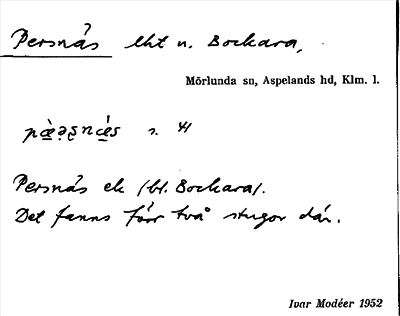 Persnäs lht u. Bockara,
Mörlunda sn, Aspelands hd, Klm. l.
pæ̀əʂnæ̀s
Persnäs ek (bl. Bockara).
Det fanns förr två stugor där.
Ivar Modéer 1952